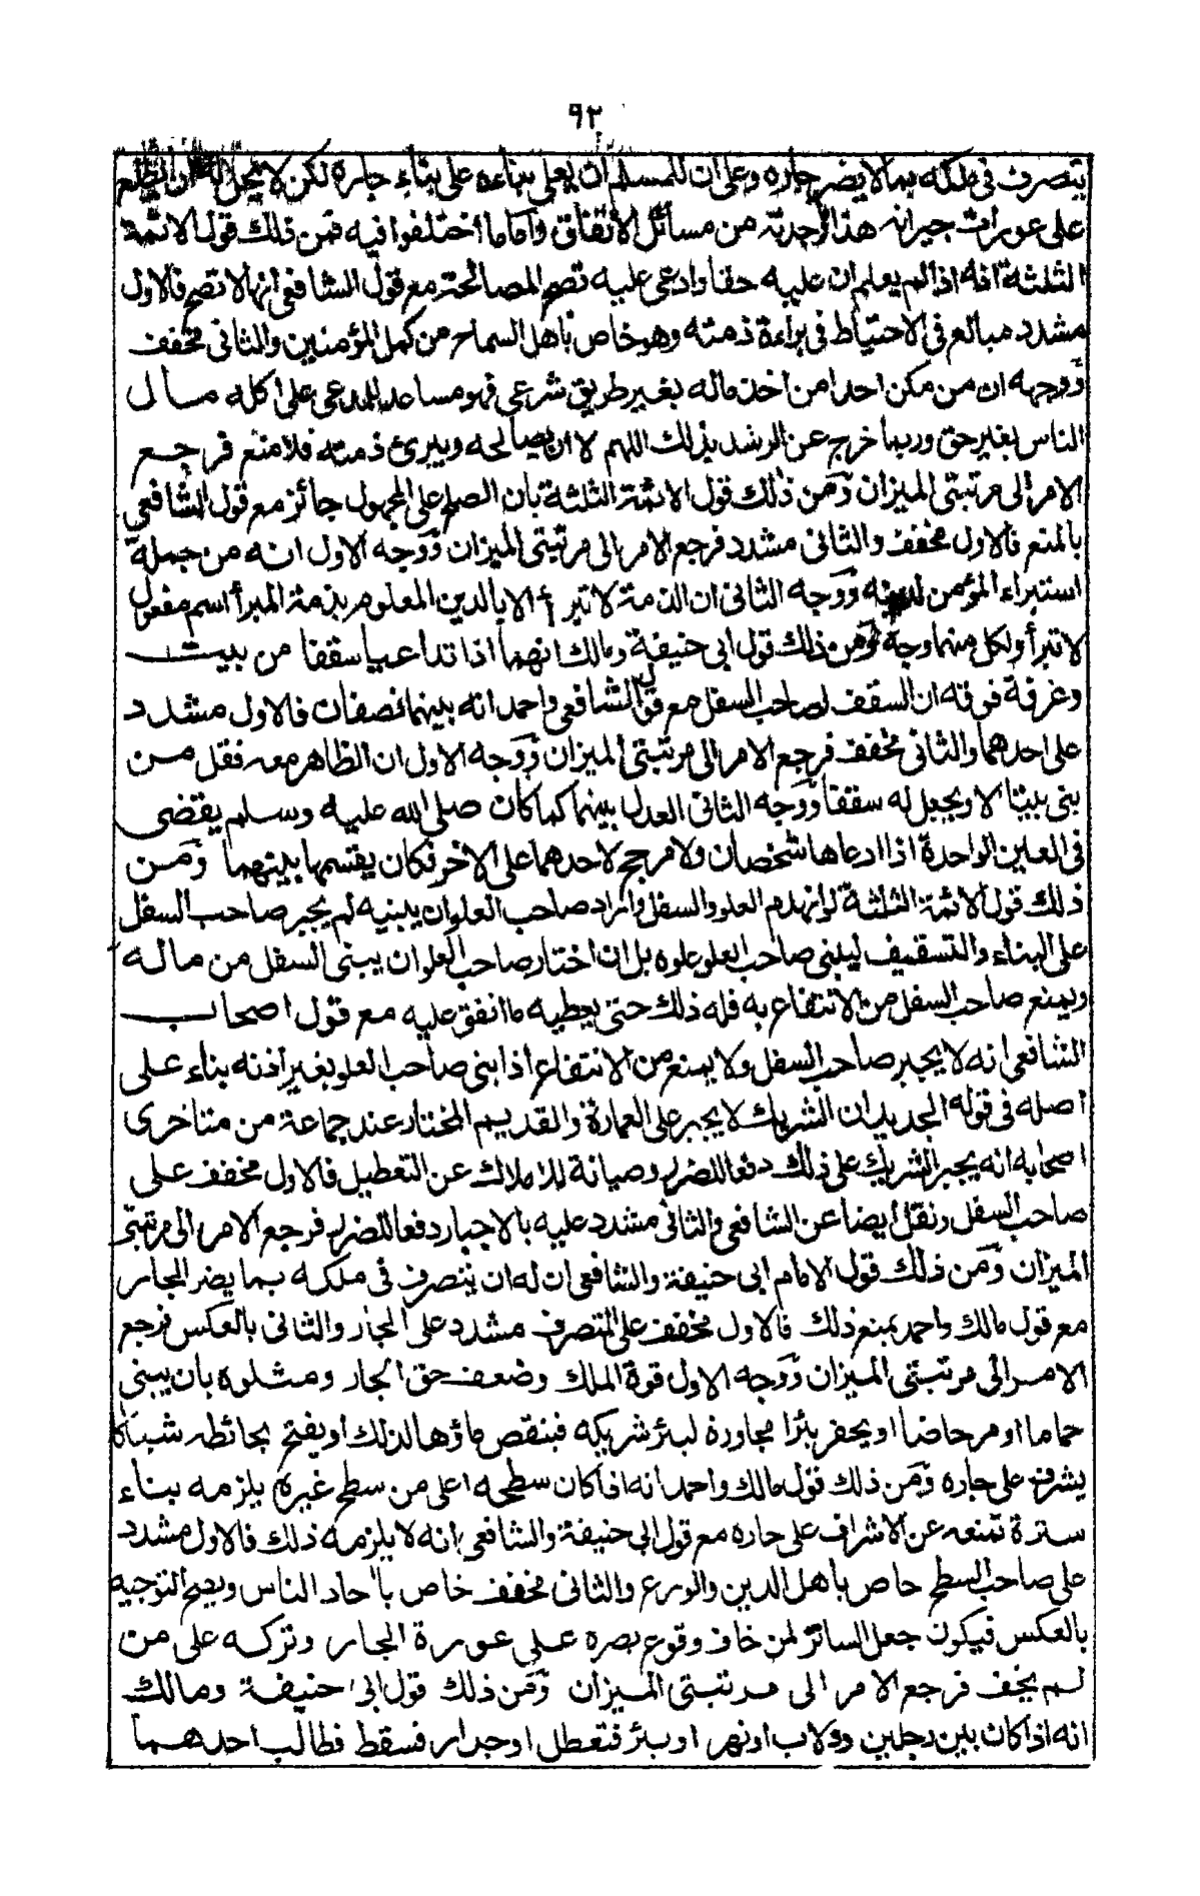 ٩٢
يتصرف فى ملكه بما لا يضر جاره وعلى ان للمسلم ان يعلى بناءه على بناء جاره لكن لا يحل له ان يطلع
على عورات جيرانه هذا ما وجدته من مسائل الاتفاق واما ما اختلفوا فيه فمن ذلك قول الائمة
الثلثة انه اذا لم يعلم ان عليه حقا وادعى عليه تصح المصالحة مع قول الشافعى انها لا تصح فالاول
مشدد مبالغ فى الاحتياط فى براءة ذمته وهو خاص باهل السماح من كمل المؤمنين والثانى مخفف
ووجهه ان من مكن احدا من اخذ ماله بغير طريق شرعى فهو مساعد للمدعى على اكله مال
الناس بغير حق وربما خرج عن الرشد بذلك اللهم لا ان يصالحه ويبرئ ذمته فلا منع فرجع
الامر الى مرتبتى الميزان ومن ذلك قول الائمة الثلثة بان الصلح على المجهول جائز مع قول الشافعي
بالمنع فالاول مخفف والثانى مشدد فرجع الامر الى مرتبتى الميزان ووجه الاول انه من جملة
استبراء المؤمن لدينه ووجه الثانى ان الذمة لا تبرأ الا بالدين المعلوم بذمة المبرأ اسم مفعول
لا تبرأ ولكل منهما وجه ومن ذلك قول ابى حنيفة ومالك انهما اذا تداعيا سقفا من بيت
وغرفة فوقه ان السقف لصاحب السفل مع قول الشافعى واحمد انه بينهما نصفان فالاول مشدد
على احدهما والثانى مخفف فرجع الامر الى مرتبتى الميزان ووجه الاول ان الظاهر معه فقل من
بنى بيتا الا ويجعل له سقفا ووجه الثانى العدل بينهما كما كان صلى الله عليه وسلم يقضى
فى العين الواحدة اذا ادعاها شخصان ولا مرجح لاحدهما على الاخر فكان يقسمها بينهما ومن
ذلك قول الائمة الثلثة لو انهدم العلو والسفل واراد صاحب العلو ان يبنيه لم يجبر صاحب السفل
على البناء والتسقيف ليبنى صاحب العلو علوه بل ان اختار صاحب العلو ان يبنى السفل من ماله
ويمنع صاحب السفل من الانتفاع به فله ذلك حتى يعطيه ما انفق عليه مع قول اصحاب
الشافعى انه لا يجبر صاحب السفل ولا يمنع من الانتفاع اذا بنى صاحب العلو بغير اذنه بناء على
اصله فى قوله الجديد ان الشريك لا يجبر على العمارة والقديم المختار عند جماعة من متاخرى
اصحابه انه يجبر الشريك على ذلك دفعا للضرر وصيانة للاملاك عن التعطيل فالاول مخفف على
صاحب السفل ونقل ايضا عن الشافعى والثانى مشدد عليه بالاجبار دفعا للضرر فرجع الامر الى مرتبتى
الميزان ومن ذلك قول الامام ابى حنيفة والشافعى ان له ان يتصرف فى ملكه بما يضر الجار
مع قول مالك واحمد بمنع ذلك فالاول مخفف على المتصرف مشدد على الجار والثانى بالعكس فرجع
الامر الى مرتبتى الميزان ووجه الاول قوة الملك وضعف حق الجار ومثلوه بان يبنى
حماما او مرحاضا او يحفر بئرا مجاورة لبئر شريكه فينقص ماؤها لذلك او يفتح بحائطه شباكا
يشرف على جاره ومن ذلك قول مالك واحمد انه اذا كان سطحه اعلى من سطح غيره يلزمه بناء
سترة تمنعه عن الاشراف على جاره مع قول ابى حنيفة والشافعى انه لا يلزمه ذلك فالاول مشدد
على صاحب السطح خاص باهل الدين والورع والثانى مخفف خاص باحاد الناس ويصح التوجيه
بالعكس فيكون جعل الساتر لمن خاف وقوع بصره على عورة الجار وتركه على من
لم يخف فرجع الامر الى مرتبتى الميزان ومن ذلك قول ابى حنيفة ومالك
انه اذا كان بين رجلين دولاب او نهر او بئر فتعطل او جدار فسقط فطالب احدهما